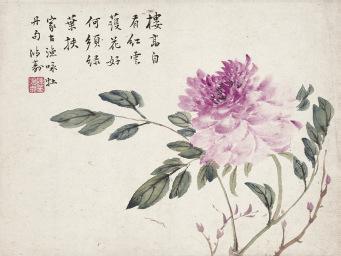 樓高自
有紅雲
護花好
何須綠
葉扶
家古漁咏牡
丹句